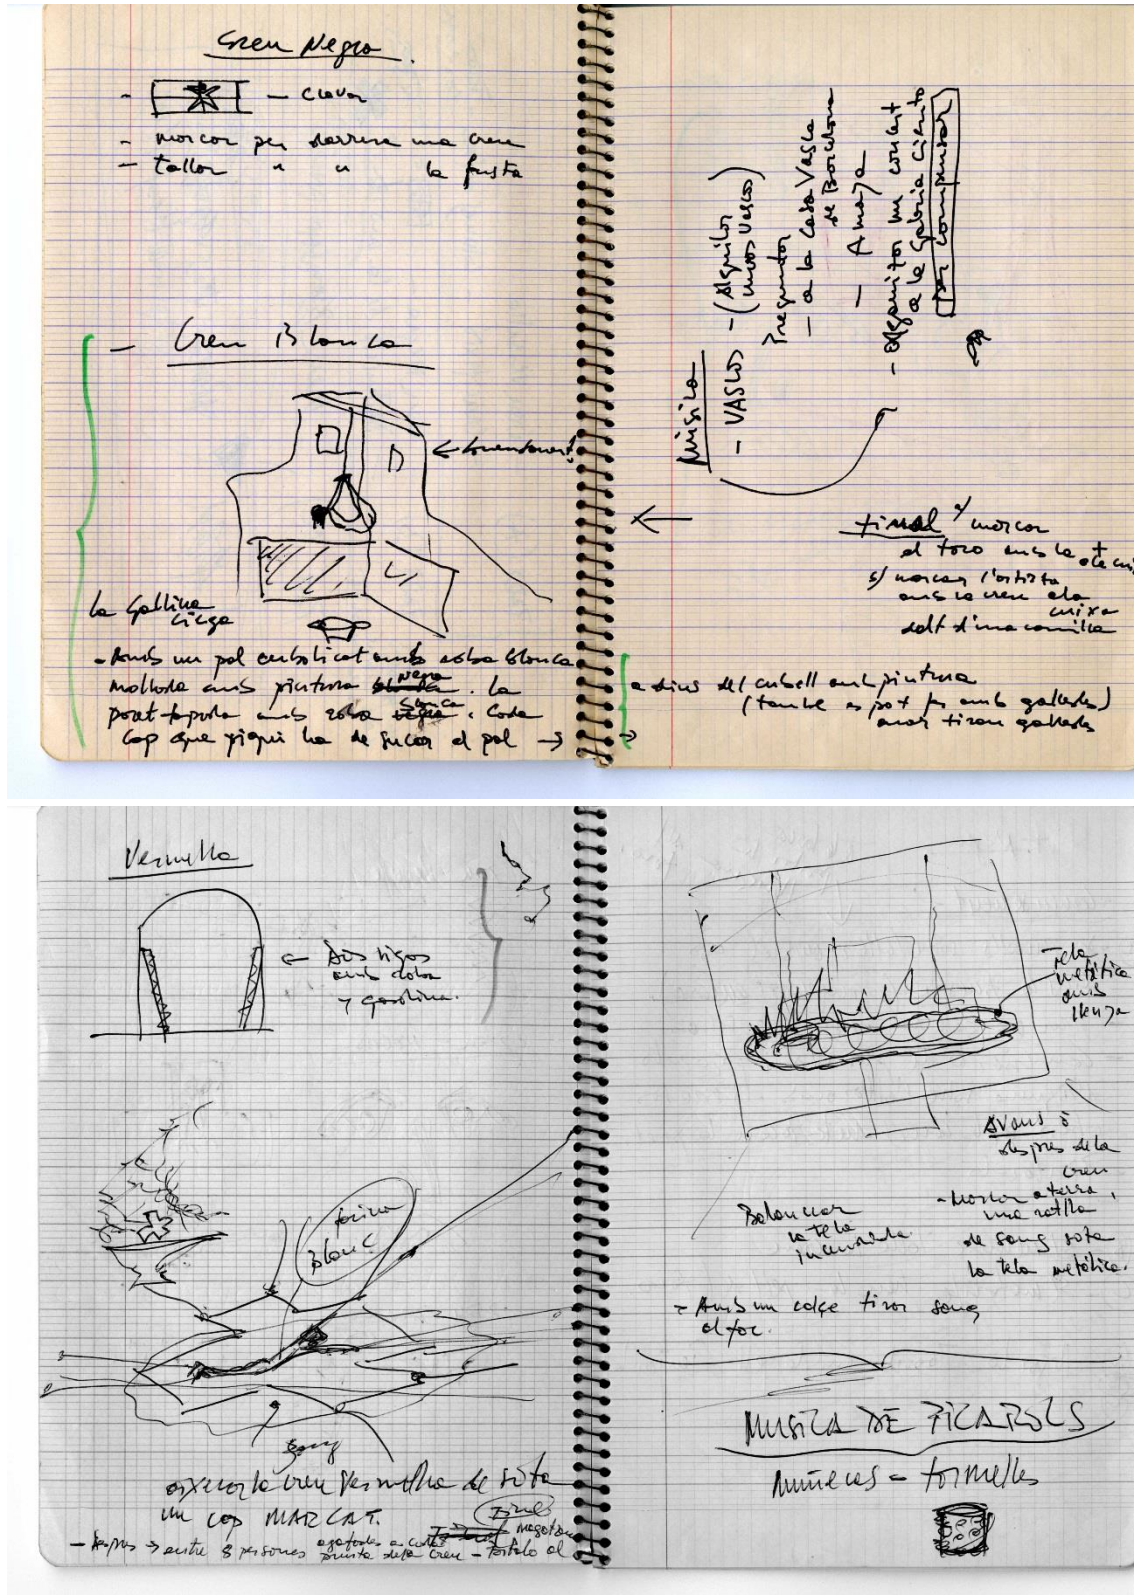 Creu Negra
- clavar
- marcar per darrera una creu
- tallar " " la fusta
- Creu Blanca
la Gallina
ciega
- Amb un pal embolicat amb roba blanca
mollada amb pintura negra. La
paret tapada amb roba blanca. Cada
cop que piqui ha de sucar el pal →
Música
- VASCOS - (Alquilar
(discos vascos)
Preguntar
- a la Casa Vasca
de Barcelona
- Amaya
- Alquitar un concert
a la Galeria Ciento
per compensar
Final
marcar
el toro amb la +
s/ marcar l'artista
amb la creu a la
cuixa
dalt d'una camilla
a dins del cubell amb pintura
(també es pot fer amb galledes)
anar tirant galledes
Vermella
← Dos bigas
amb roba
y gasolina.
farina
blanc
Sang
aixecar la creu vermella de sota
un cop MARCAT.
- Després → entre 8 persones agafades a cada
punta de la creu -
Tela
metàlica
amb
llenya
Avans ó
després de la
creu
- Marcar a terra,
una rotlla
de sang sota
la tela metálica.
Balancear
la tela
- Amb un calçe tirar sang
al foc.
MUSICA DE PICAROLS
Muñecas = turmelles